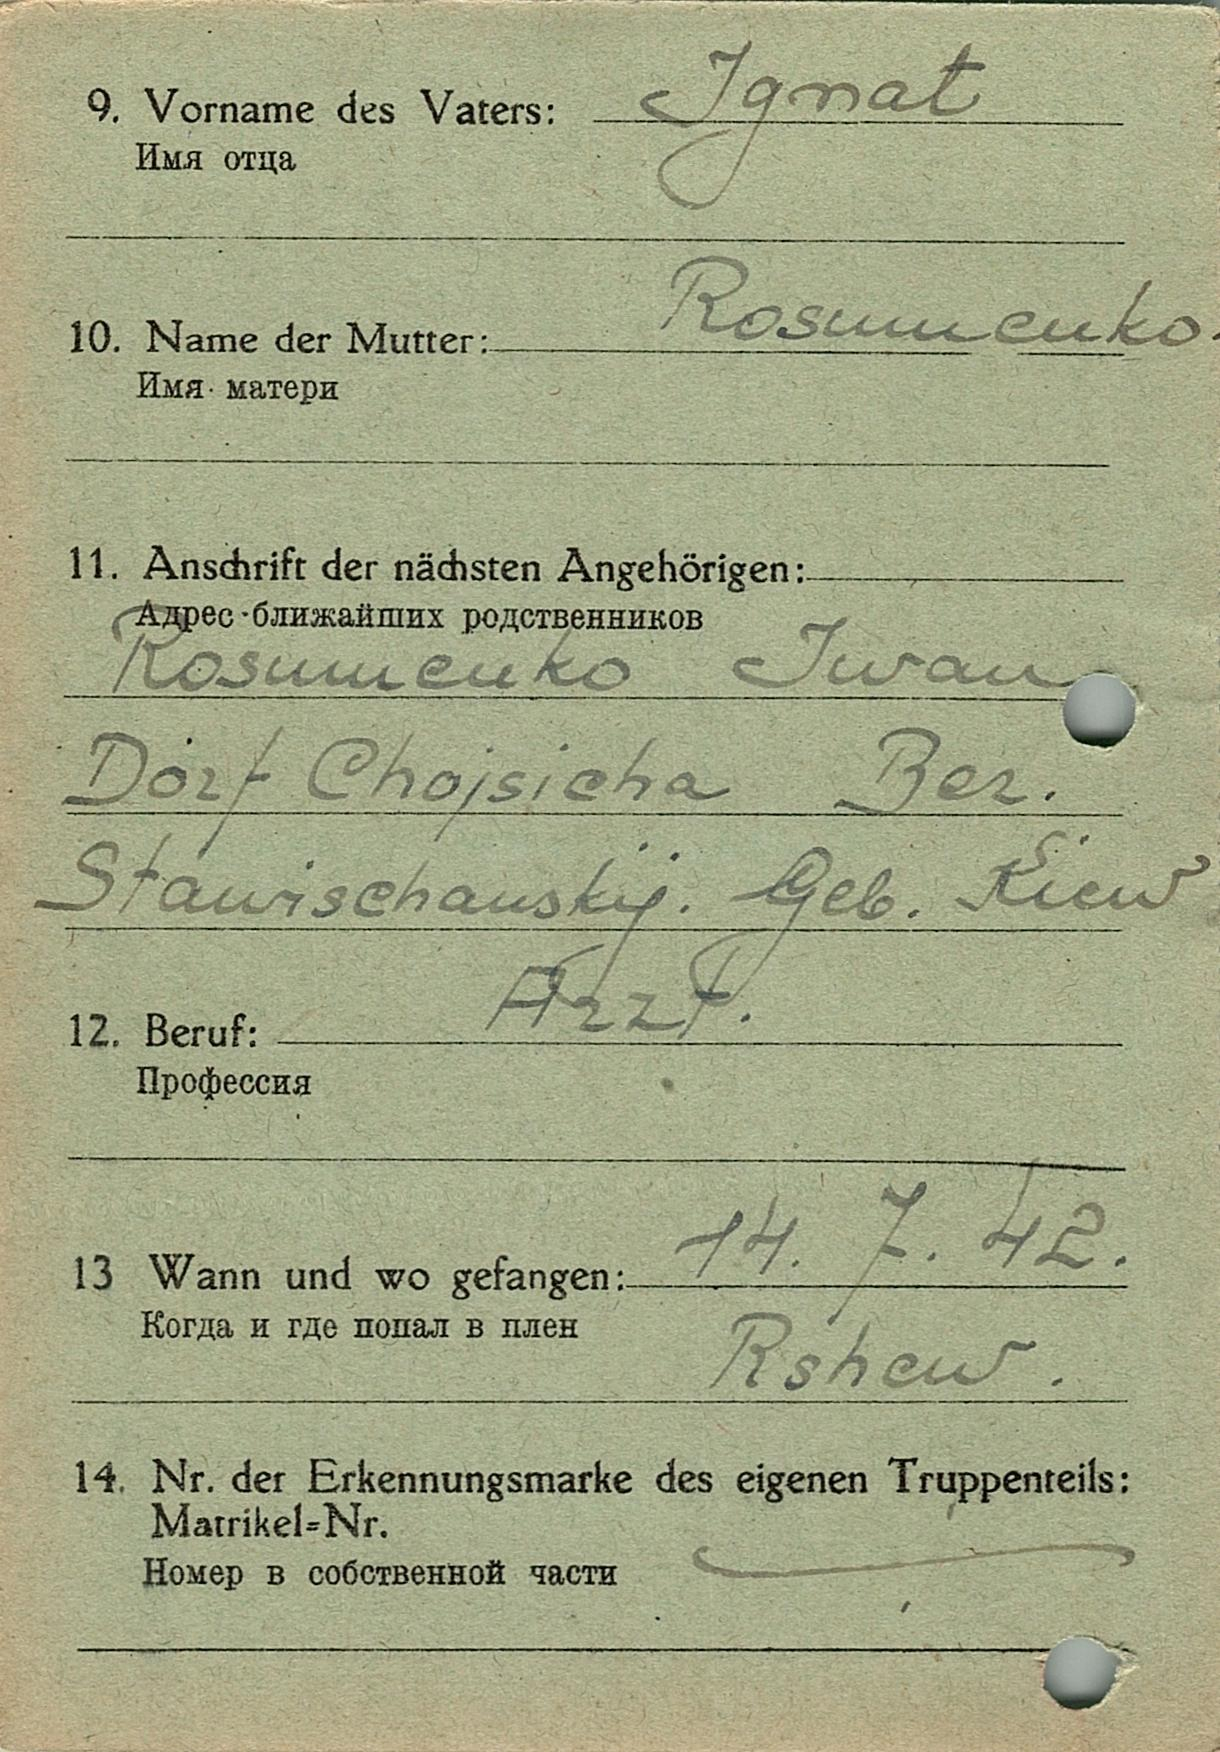 9. Vorname des Vaters: Ignat
Имя отца
10. Name der Mutter: Rosumenko.
Имя матери
11. Anschrift der nächsten Angehörigen:
Адрес ближайших родственников
Rosumenko Iwan
Dorf Chojsicha Bez.
Stawischanskij. Geb. Kiew
12. Beruf: Arzt.
Профессия
13 Wann und wo gefangen: 14. 7. 42.
Когда и где попал в плен
Rshew.
14. Nr. der Erkennungsmarke des eigenen Truppenteils:
Matrikel=Nr.
Номер в собственной части